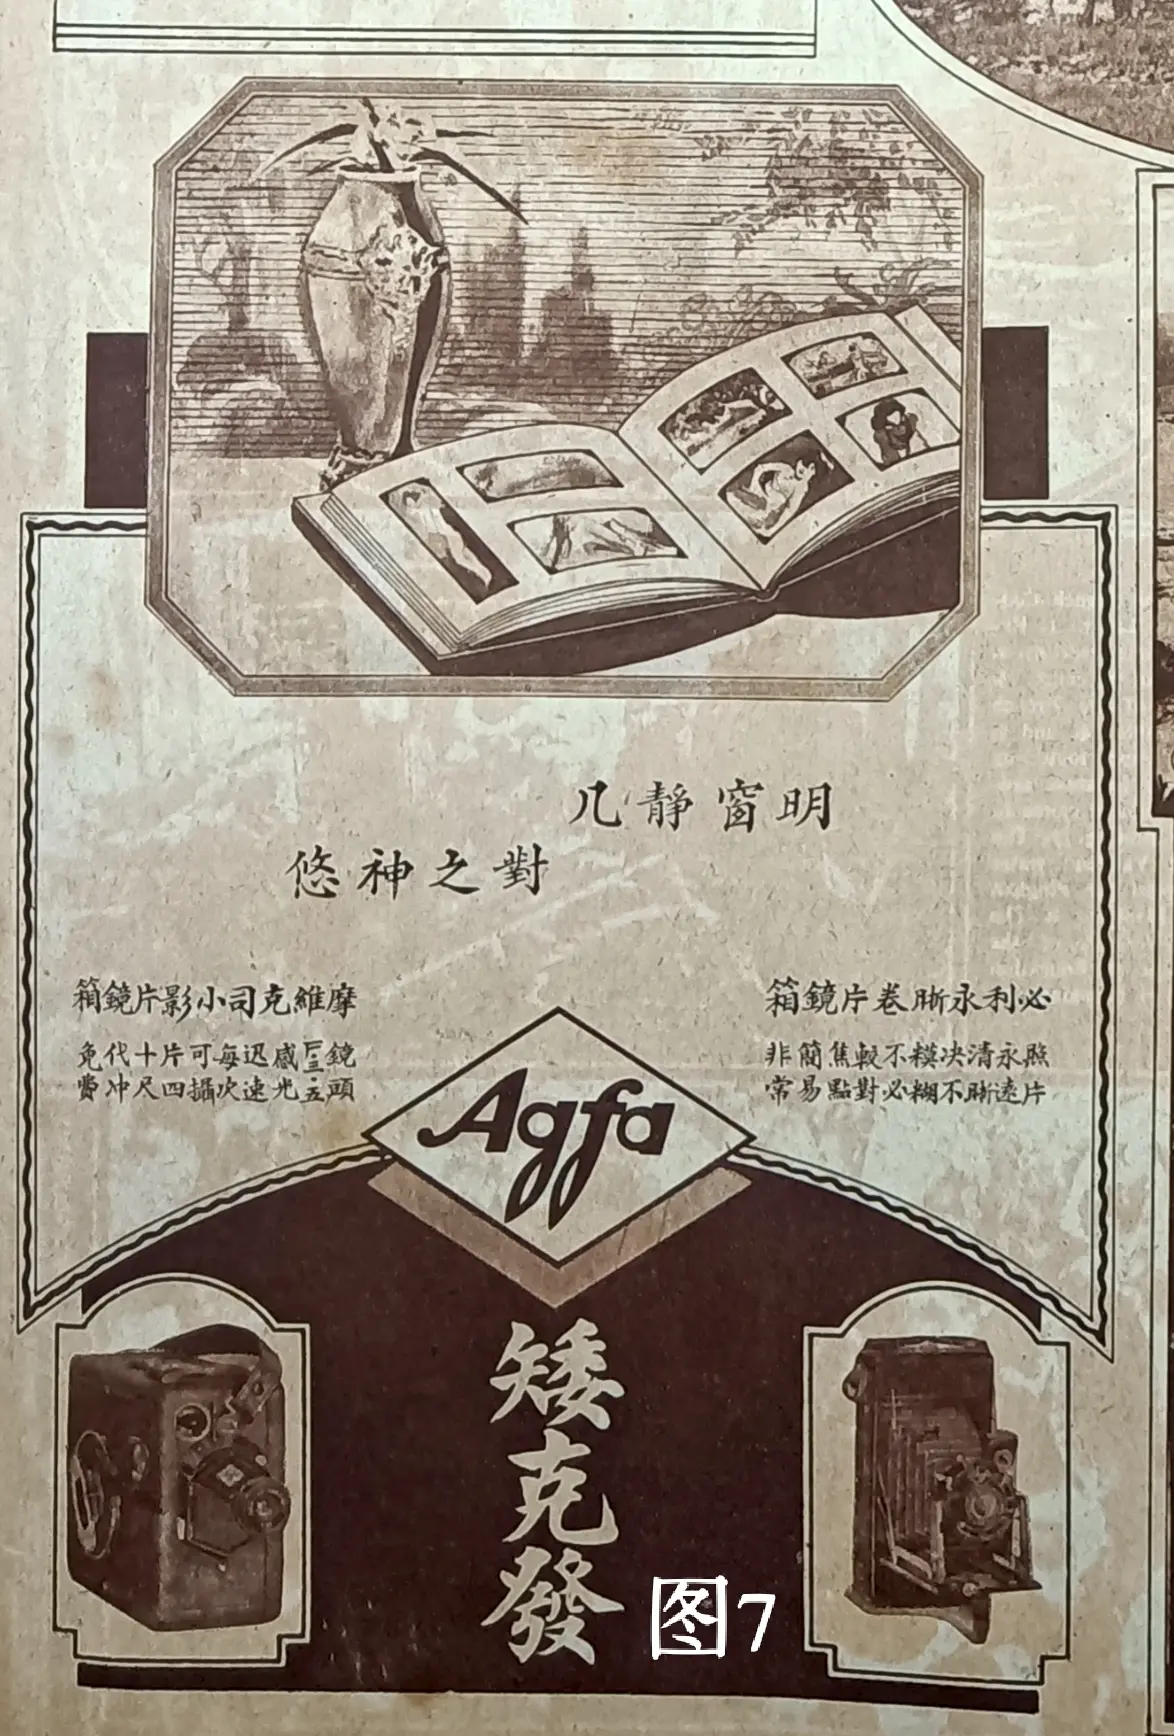 明窗靜几
對之神悠
必利永晰卷片鏡箱
照片永遠清晰决不糢糊不必較對焦點簡易非常
摩維克司小影片鏡箱
鏡頭F三·五感光迅速每次可攝片四十尺代冲免費
Agfa
矮克發
图7